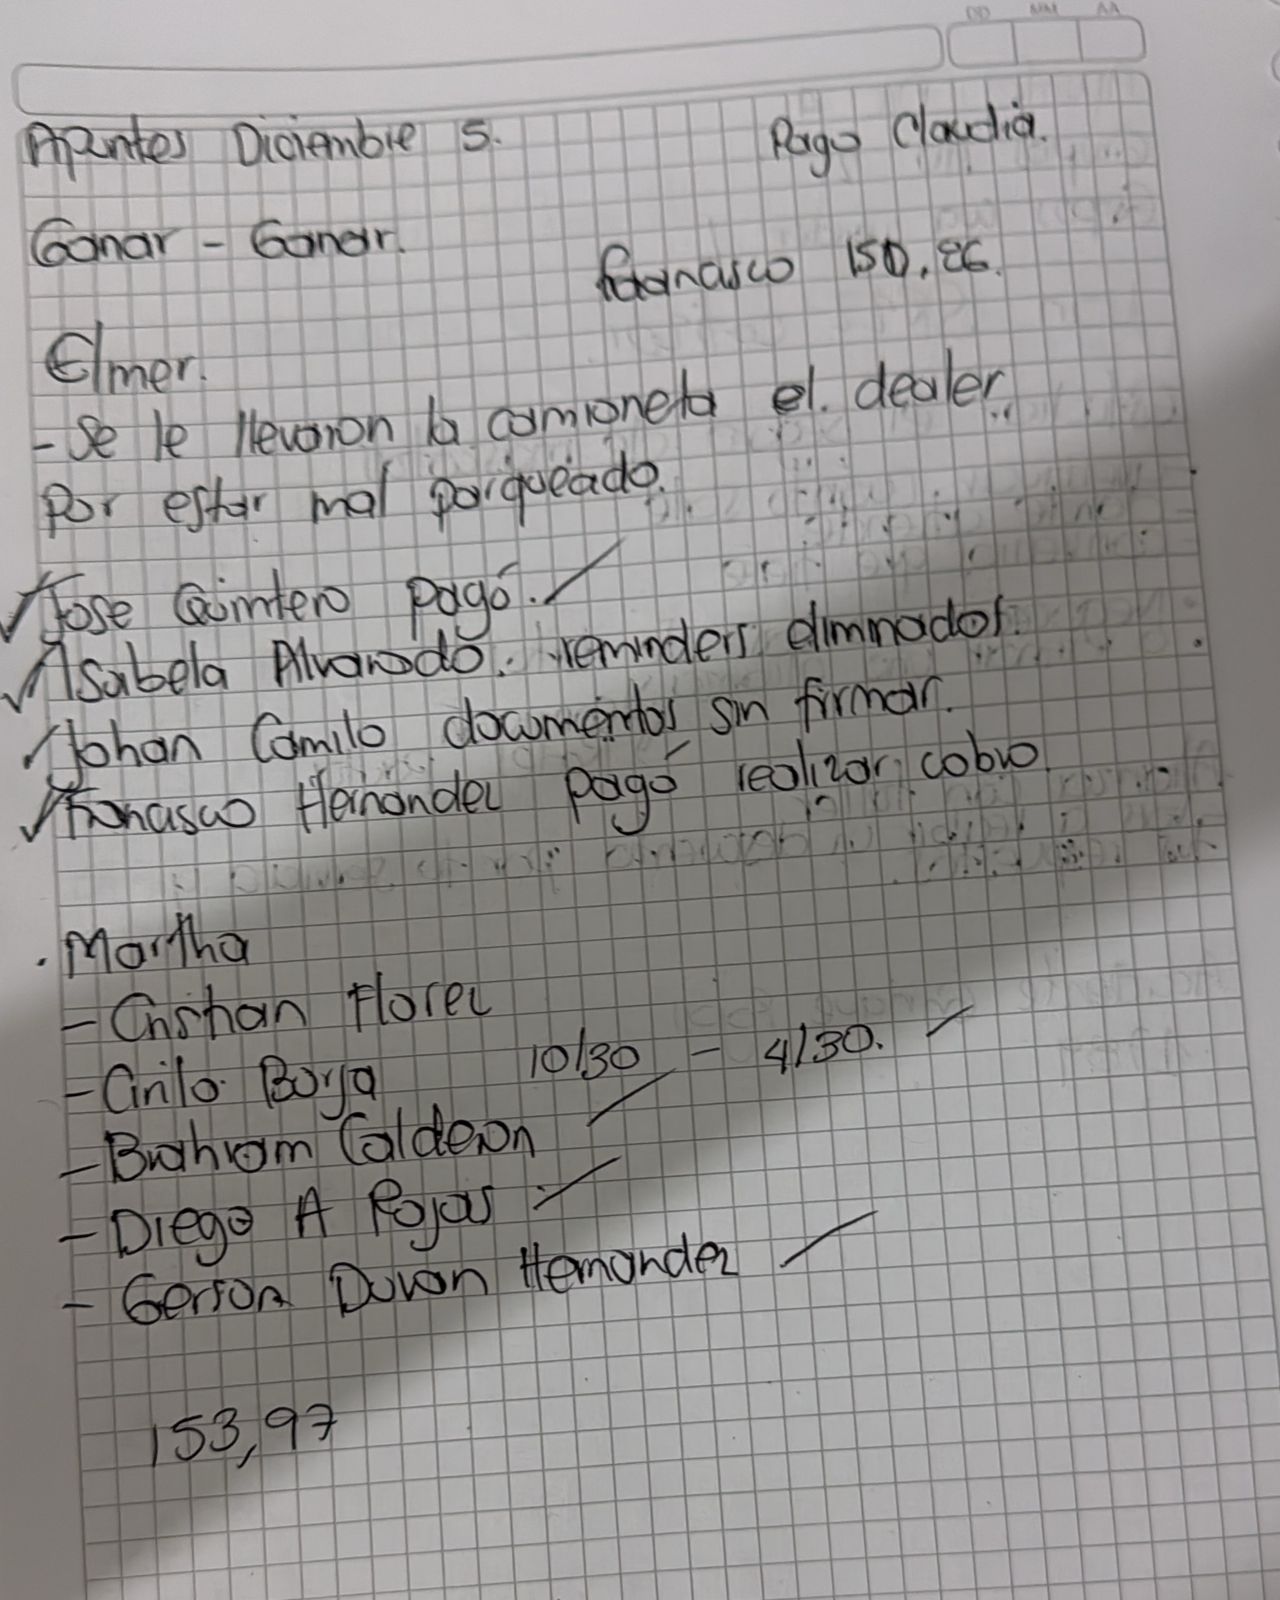 DD MM AA
Apuntes Diciembre 5. Pago Claudia.
Ganar - Ganar.
150,86.
Elmer.
- Se le llevaron la camioneta el. dealer
Por estar mal parqueado.
Jose Quintero Pagó.
Isabela Alvarado. reminders eliminados.
Johan Camilo documentos sin firmar.
Francisco Hernandez Pagó realizar cobro
. Martha
- Cristian Florez
- Cirilo Borja 10/30 - 4/30.
- Calderon
- Diego A Rojas
- Gerson Duvan Hernandez
153,97